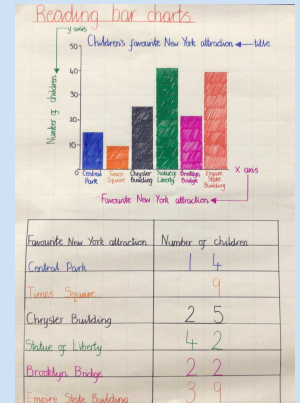 Reading bar charts
y axis
Children's favourite New York attraction
title
50
40
30
20
10
0
Number of children
Central Park
Times Square
Chrysler Building
Statue of Liberty
Brooklyn Bridge
Empire State Building
X axis
Favourite New York attraction
Favourite New York attraction Number of children
Central Park 14
Times Square 9
Chrysler Building 25
Statue of Liberty 42
Brooklyn Bridge 22
Empire State Building 39